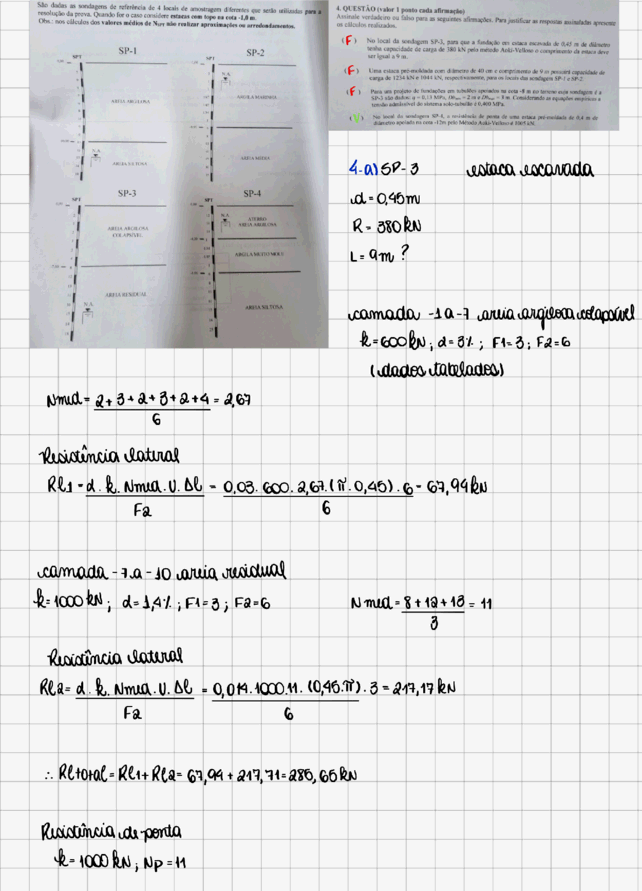 São dadas as sondagens de referência de 4 locais de amostragem diferentes que serão utilizadas para a
resolução da prova. Quando for o caso considere estacas com topo na cota -1,0 m.
Obs.: nos cálculos dos valores médios de NSPT não realizar aproximações ou arredondamentos.
SP-1
SP-2
SPT
SPT
N.A.
AREIA ARGILOSA
N.A.
SP-3
SP-4
SPT
SPT
AREIA ARGILOSA
COLAPSÍVEL
N.A.
ATERRO
AREIA ARGILOSA
ARGILA MUITO MOLE
AREIA RESIDUAL
N.A.
AREIA SILTOSA
4. QUESTÃO (valor 1 ponto cada afirmação)
Assinale verdadeiro ou falso para as seguintes afirmações. Para justificar as respostas assinaladas apresente
os cálculos realizados.
(F) No local da sondagem SP-3, para que a fundação em estaca escavada de 0,45 m de diâmetro
tenha capacidade de carga de 380 kN pelo método Aoki-Velloso o comprimento da estaca deve
ser igual a 9 m.
(F) Uma estaca pré-moldada com diâmetro de 40 cm e comprimento de 9 m possuirá capacidade de
carga de 1234 kN e 1041 kN, respectivamente, para os locais das sondagens SP-1 e SP-2
(F) Para um projeto de fundações em tubulões apoiados na cota -8 m no terreno cuja sondagem é a
tensão admissível do sistema solo-tubulão é 0,400 MPa.
(V) No local da sondagem SP-4, a resistência de ponta de uma estaca pré-moldada de 0,4 m de
diâmetro apoiada na cota -12m pelo Método Aoki-Velloso é 1005 kN.
4-a) SP-3 estaca escavada
d = 0,45m
R = 380kN
L = 9m ?
camada -1 a -7 areia argilosa colapsível
k=600kN; d=3%; F1=3; F2=6
(dados tabelados)
Nmed = 2+3+2+3+2+4 = 2,67
6
Resistência lateral
Rl1 = d. k. Nmed. U. Δl = 0,03. 600. 2,67. (π. 0,45). 6 = 67,94kN
F2 6
camada -7 a -10 areia residual
k=1000kN; d=1,4%; F1=3; F2=6 Nmed = 8+12+13 = 11
3
Resistência lateral
Rl2 = d. k. Nmed. U. Δl = 0,014.1000.11. (0,45.π). 3 = 217,17kN
F2 6
∴ Rltotal = Rl1 + Rl2 = 67,94 + 217,71 = 285,65kN
Resistência de ponta
k=1000kN; Np=11